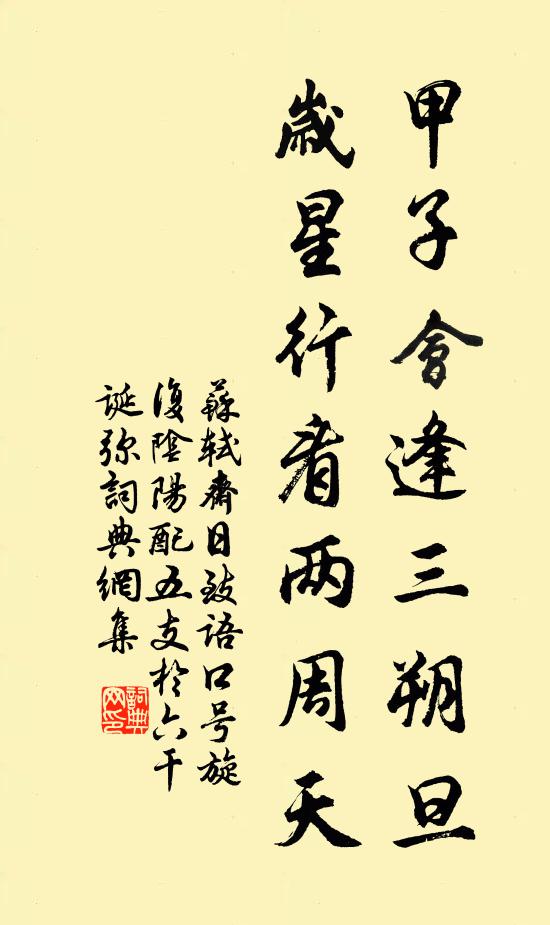 甲子會逢三朔旦
歲星行看兩周天
蘇軾齋日致語口号旋
復陰陽配五支於六干
誕弥詞典網集
詞典网印